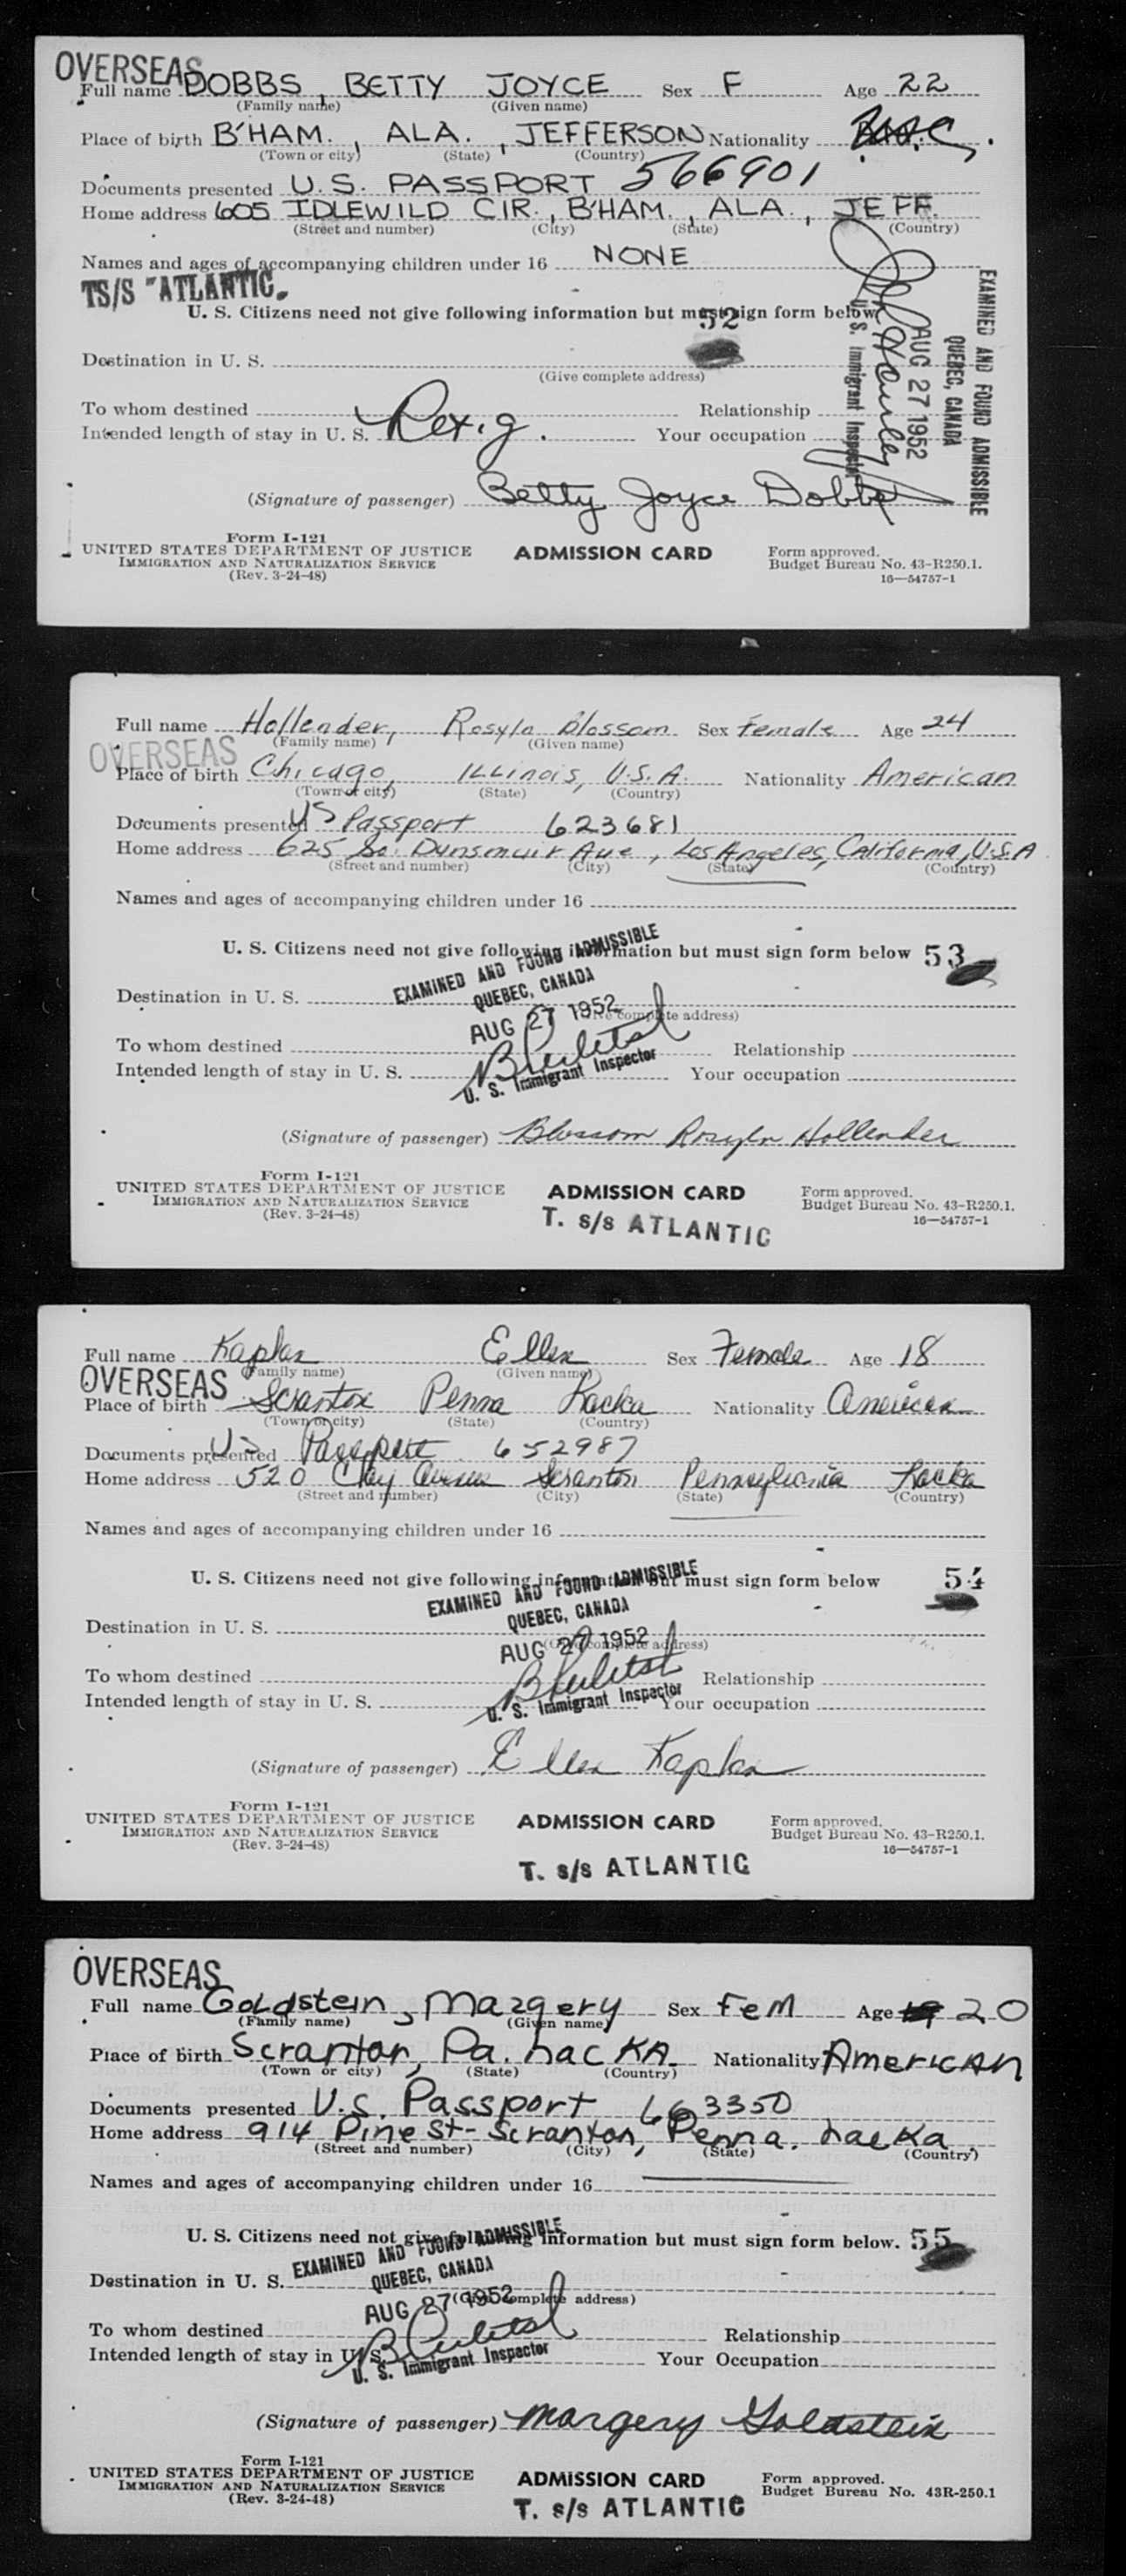 OVERSEAS
Full name DOBBS, BETTY JOYCE Sex F Age 22
(Family name) (Given name)
Place of birth B'HAM., ALA., JEFFERSON Nationality
(Town or city) (State) (Country)
Documents presented U.S. PASSPORT 566901
Home address 605 IDLEWILD CIR., B'HAM., ALA., JEFF.
(Street and number) (City) (State) (Country)
Names and ages of accompanying children under 16 NONE
TS/S "ATLANTIC"
U. S. Citizens need not give following information but must sign form below
52
Destination in U. S.
(Give complete address)
To whom destined Relationship
Intended length of stay in U. S. Your occupation
EXAMINED AND FOUND ADMISSIBLE
QUEBEC, CANADA
AUG 27 1952
U. S. Immigrant Inspector
(Signature of passenger) Betty Joyce Dobbs
Form I-121
UNITED STATES DEPARTMENT OF JUSTICE
IMMIGRATION AND NATURALIZATION SERVICE
(Rev. 3-24-48)
ADMISSION CARD
Form approved.
Budget Bureau No. 43-R250.1.
16—54757-1
Full name Hollender, Rosyln Blossom Sex Female Age 24
(Family name) (Given name)
OVERSEAS
Place of birth Chicago, Illinois, U.S.A. Nationality American
(Town or city) (State) (Country)
Documents presented US Passport 623681
Home address 625 So. Dunsmuir Ave, Los Angeles, California, U.S.A
(Street and number) (City) (State) (Country)
Names and ages of accompanying children under 16
U. S. Citizens need not give following information but must sign form below 53
EXAMINED AND FOUND ADMISSIBLE
QUEBEC, CANADA
AUG 27 1952
U. S. Immigrant Inspector
Destination in U. S.
(Give complete address)
To whom destined Relationship
Intended length of stay in U. S. Your occupation
(Signature of passenger) Blossom Rosyln Hollender
Form I-121
UNITED STATES DEPARTMENT OF JUSTICE
IMMIGRATION AND NATURALIZATION SERVICE
(Rev. 3-24-48)
ADMISSION CARD
Form approved.
Budget Bureau No. 43-R250.1.
16—54757-1
T. s/s ATLANTIC
Full name Kaplan Ellen Sex Female Age 18
(Family name) (Given name)
OVERSEAS
Place of birth Scranton Penna Lacka Nationality American
(Town or city) (State) (Country)
Documents presented US Passport 652987
Home address 520 Clay Avenue Scranton Pennsylvania Lacka
(Street and number) (City) (State) (Country)
Names and ages of accompanying children under 16
U. S. Citizens need not give following information but must sign form below 54
EXAMINED AND FOUND ADMISSIBLE
QUEBEC, CANADA
AUG 27 1952
U. S. Immigrant Inspector
Destination in U. S.
(Give complete address)
To whom destined Relationship
Intended length of stay in U. S. Your occupation
(Signature of passenger) Ellen Kaplan
Form I-121
UNITED STATES DEPARTMENT OF JUSTICE
IMMIGRATION AND NATURALIZATION SERVICE
(Rev. 3-24-48)
ADMISSION CARD
Form approved.
Budget Bureau No. 43-R250.1.
16—54757-1
T. s/s ATLANTIC
OVERSEAS
Full name Goldstein, Margery Sex Fem Age 20
(Family name) (Given name)
Place of birth Scranton, Pa. Lacka. Nationality American
(Town or city) (State) (Country)
Documents presented U.S. Passport 663350
Home address 914 Pine St- Scranton, Penna. Lacka
(Street and number) (City) (State) (Country)
Names and ages of accompanying children under 16
U. S. Citizens need not give following information but must sign form below. 55
EXAMINED AND FOUND ADMISSIBLE
QUEBEC, CANADA
AUG 27 1952
U. S. Immigrant Inspector
Destination in U. S.
(Give complete address)
To whom destined Relationship
Intended length of stay in U. S. Your Occupation
(Signature of passenger) Margery Goldstein
Form I-121
UNITED STATES DEPARTMENT OF JUSTICE
IMMIGRATION AND NATURALIZATION SERVICE
(Rev. 3-24-48)
ADMISSION CARD
Form approved.
Budget Bureau No. 43R-250.1
T. s/s ATLANTIC